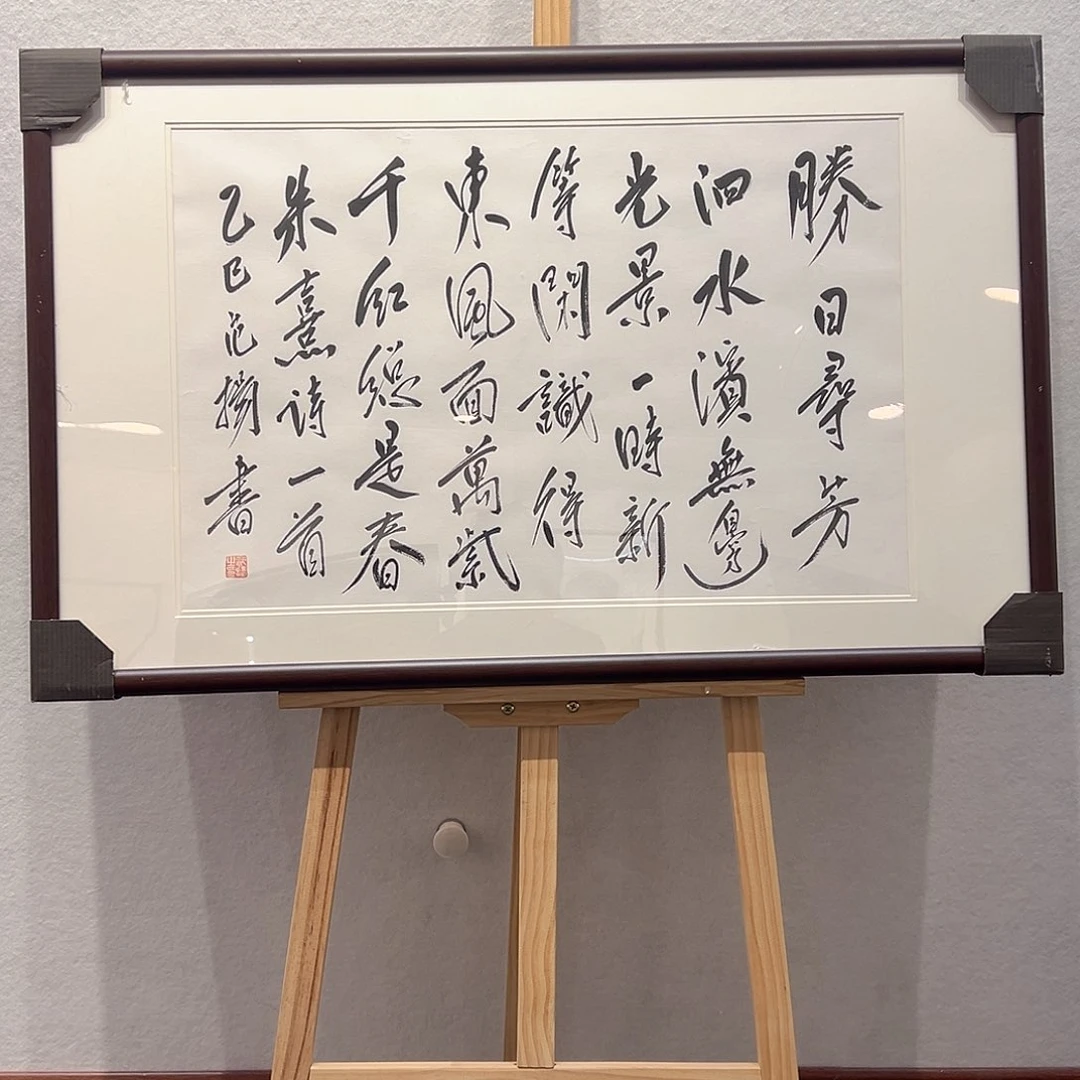 勝日尋芳
泗水濱無邊
光景一時新
等閑識得
東風面萬紫
千紅總是春
朱熹詩一首
乙巳范揚書